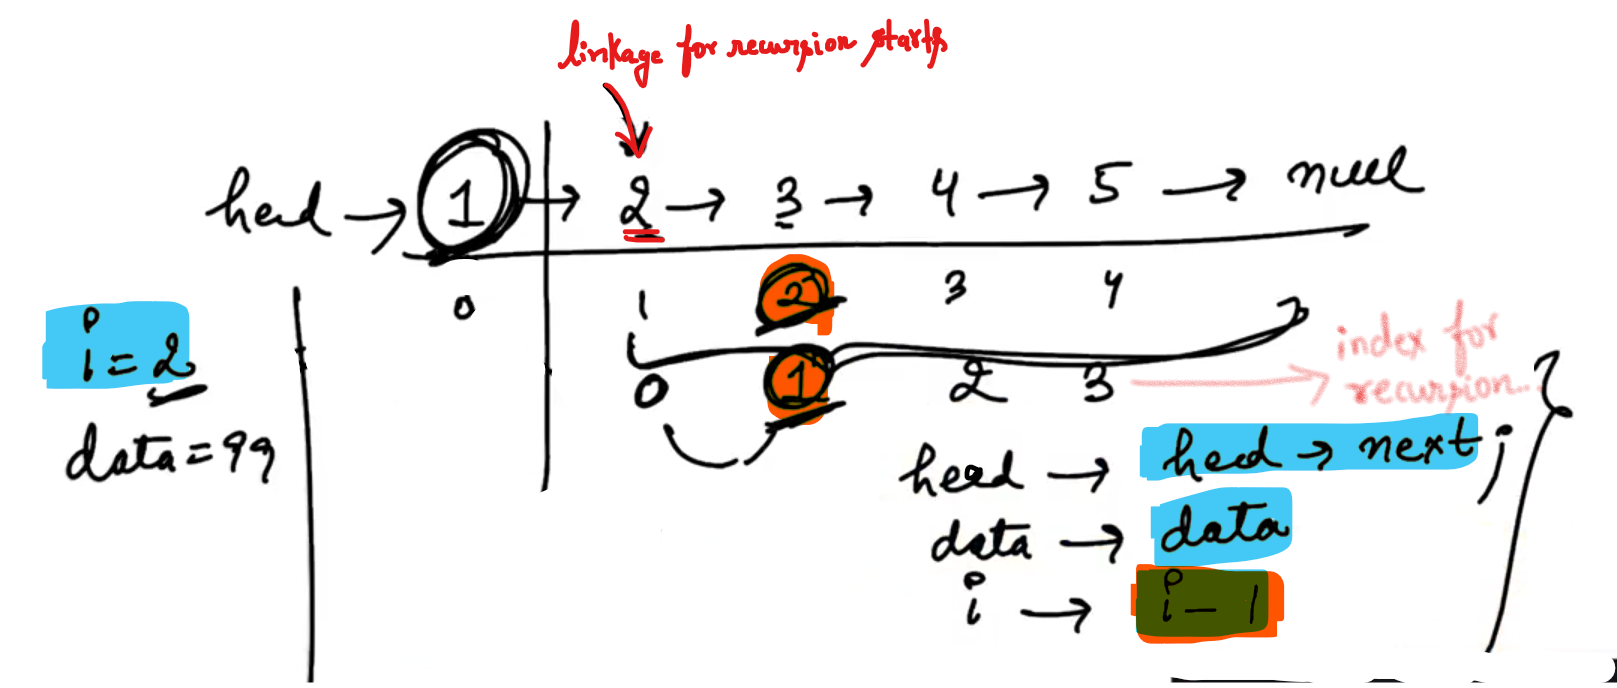 linkage for recursion starts
head → 1 → 2 → 3 → 4 → 5 → null
0 1 2 3 4
i = 2
0 1 2 3 → index for recursion..
data = 99
head → head → next ;
data → data
i → i - 1